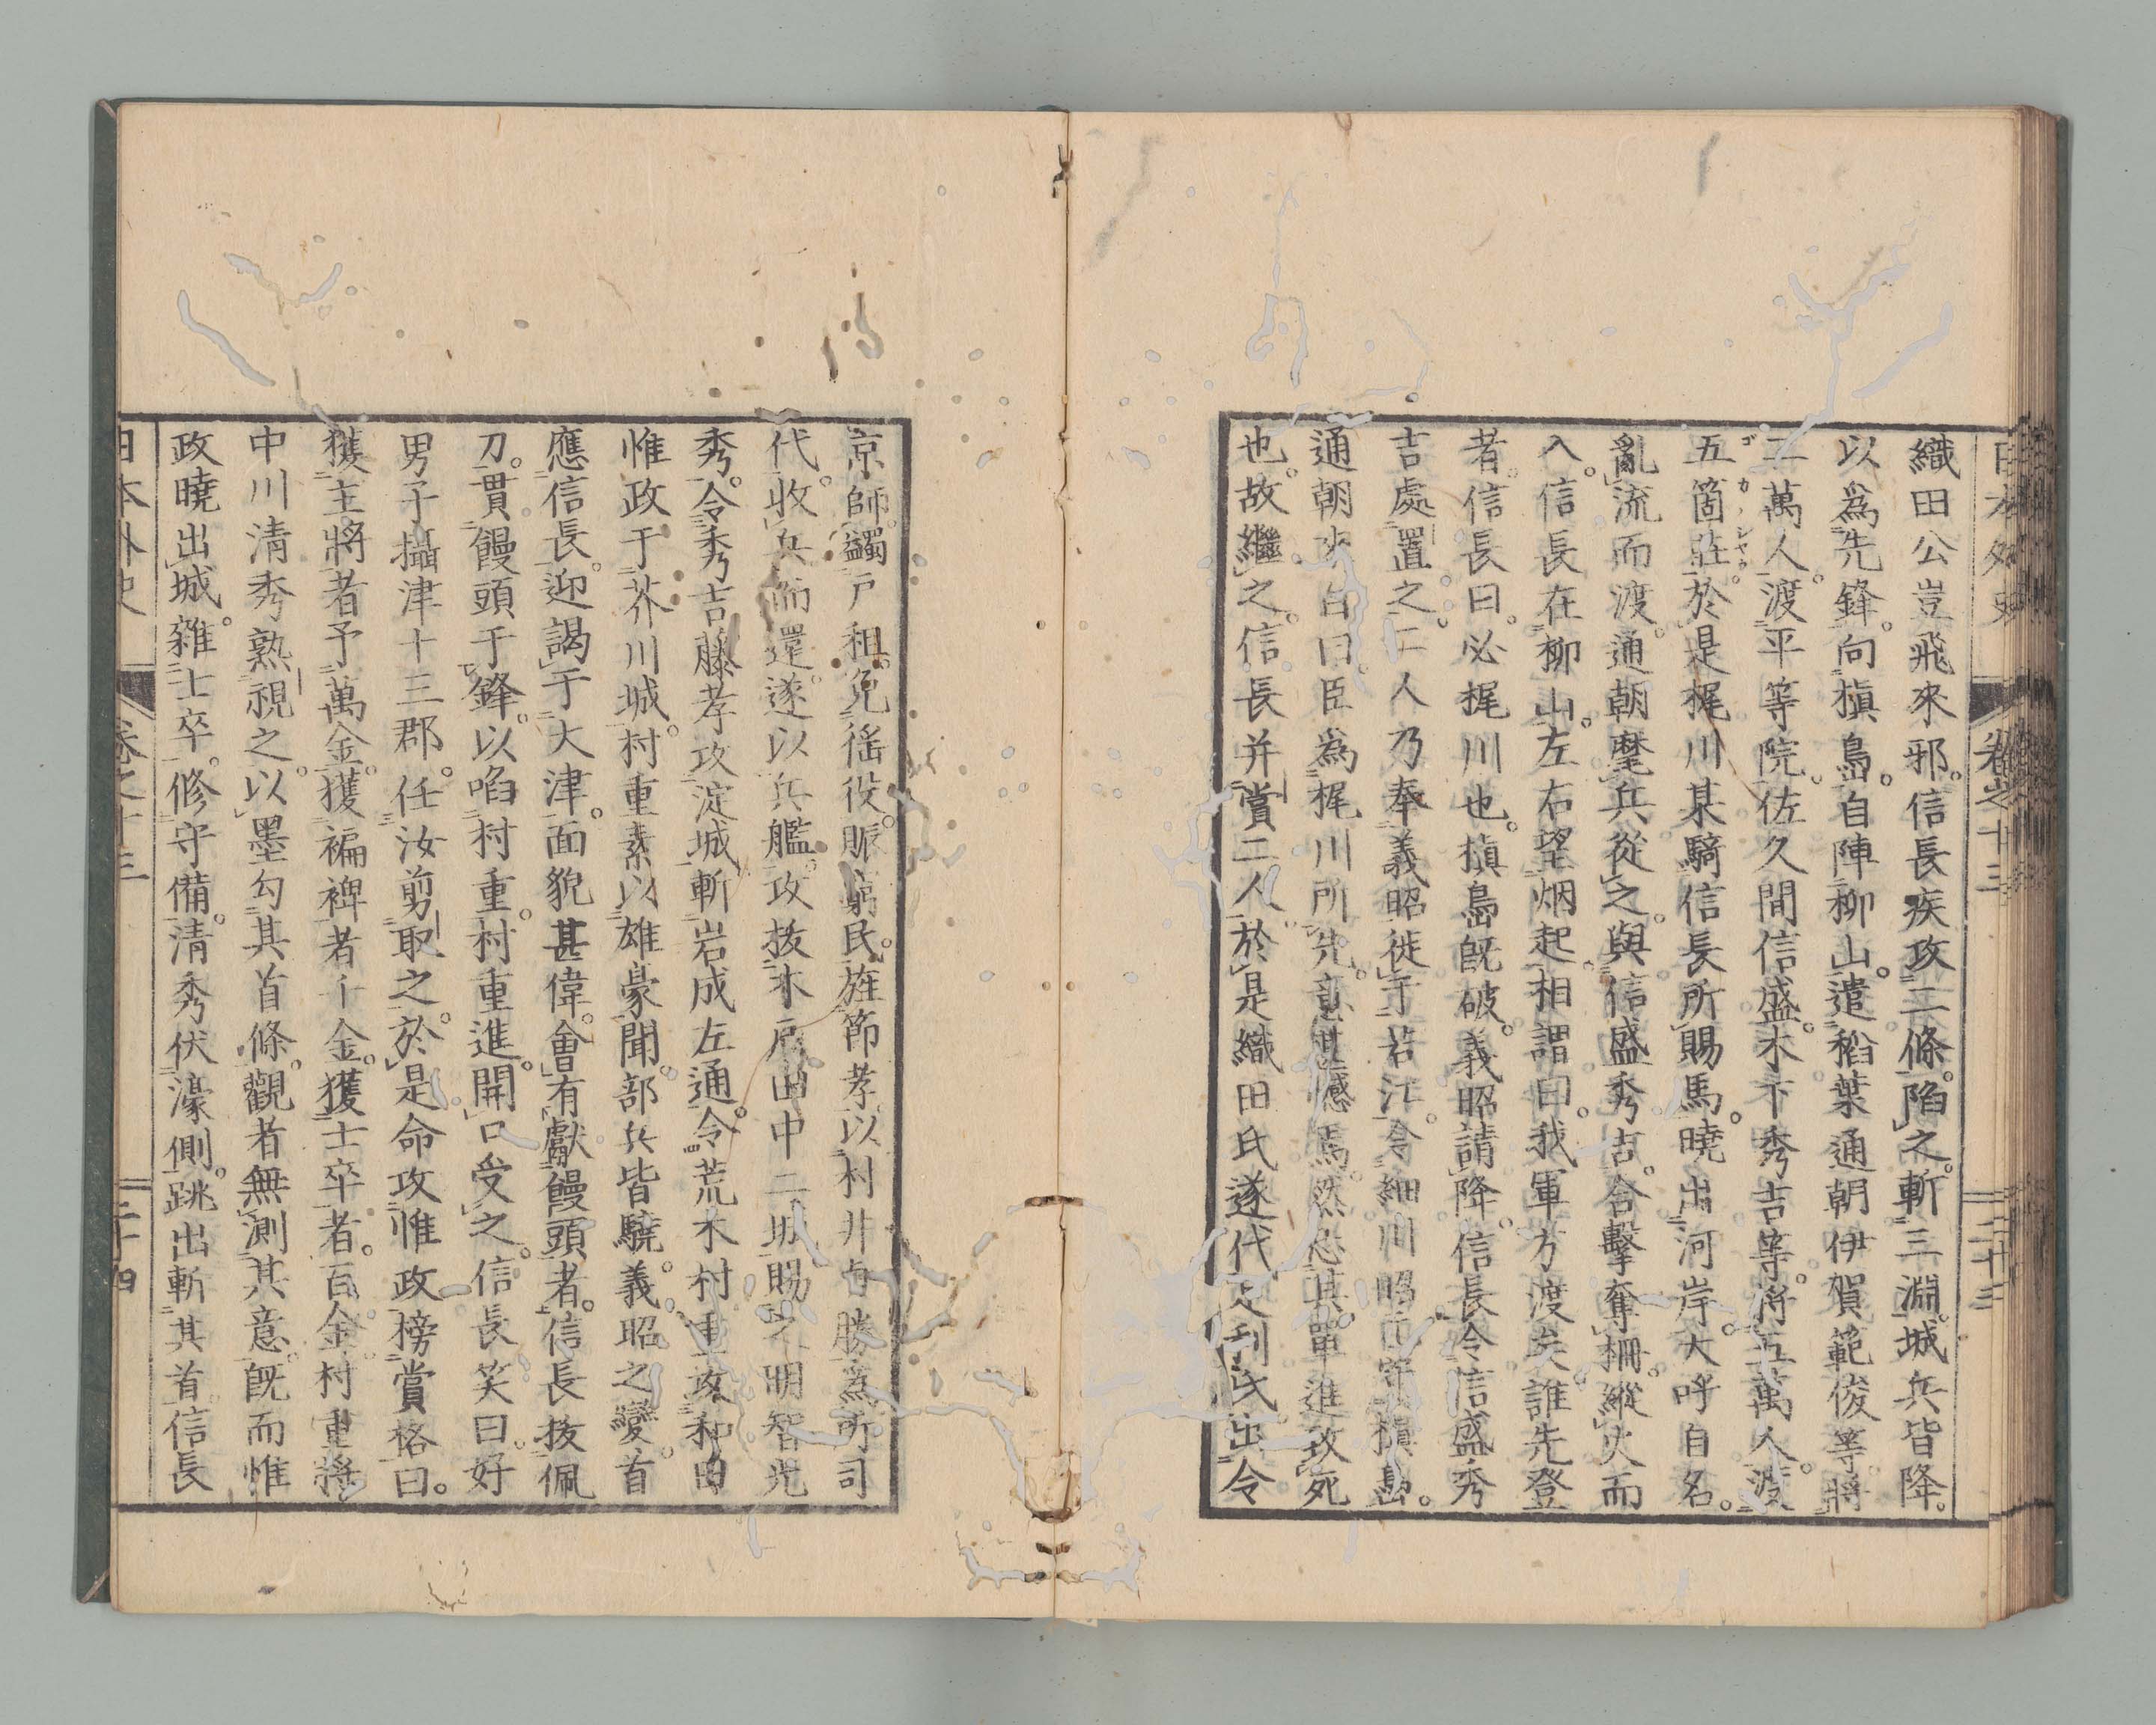 日本外史 卷之十三 二十三
織田公豈飛來邪。信長疾攻二條。陷之。斬三淵。城兵皆降。
以爲先鋒。向槇島。自陣柳山。遣稻葉通朝伊賀範俊等。將
二萬人。渡平等院。佐久間信盛。木下秀吉等。將五萬人。渡
五箇莊。於是梶川某騎信長所賜馬。曉出河岸。大呼自名。
ゴカノシヤウ
亂流而渡。通朝麾兵從之。與信盛秀吉。合擊奪柵。縱火而
入。信長在柳山。左右望烟起。相謂曰。我軍方渡矣。誰先登
者。信長曰。必梶川也。槇島既破。義昭請降。信長令信盛秀
吉處置之。二人乃奉義昭徙于若江。令細川昭元守槇島。
通朝來白曰。臣爲梶川所先。意甚憾焉。然恐其單進致死
也。故繼之。信長并賞二人。於是織田氏遂代足利氏出令
京師。蠲戶租。免徭役。賑窮民。旌節孝。以村井貞勝爲所司
代。收兵而還。遂以兵艦。攻拔木戶田中二城。賜之明智光
秀。令秀吉藤孝攻淀城。斬岩成左通。令荒木村重攻和田
惟政于芥川城。村重素以雄豪聞。部兵皆驍。義昭之變。首
應信長。迎謁于大津。面貌甚偉。會有獻饅頭者。信長拔佩
刀。貫饅頭于鋒。以啗村重。村重進。開口受之。信長笑曰。好
男子。攝津十三郡。任汝剪取之。於是命攻惟政。榜賞格曰。
獲主將者予萬金。獲褊裨者千金。獲士卒者。百金。村重將
中川清秀熟視之。以墨勾其首條。觀者無測其意。既而惟
政曉出城。雜士卒。修守備。清秀伏濠側。跳出斬其首。信長
日本外史 卷之十三 二十四